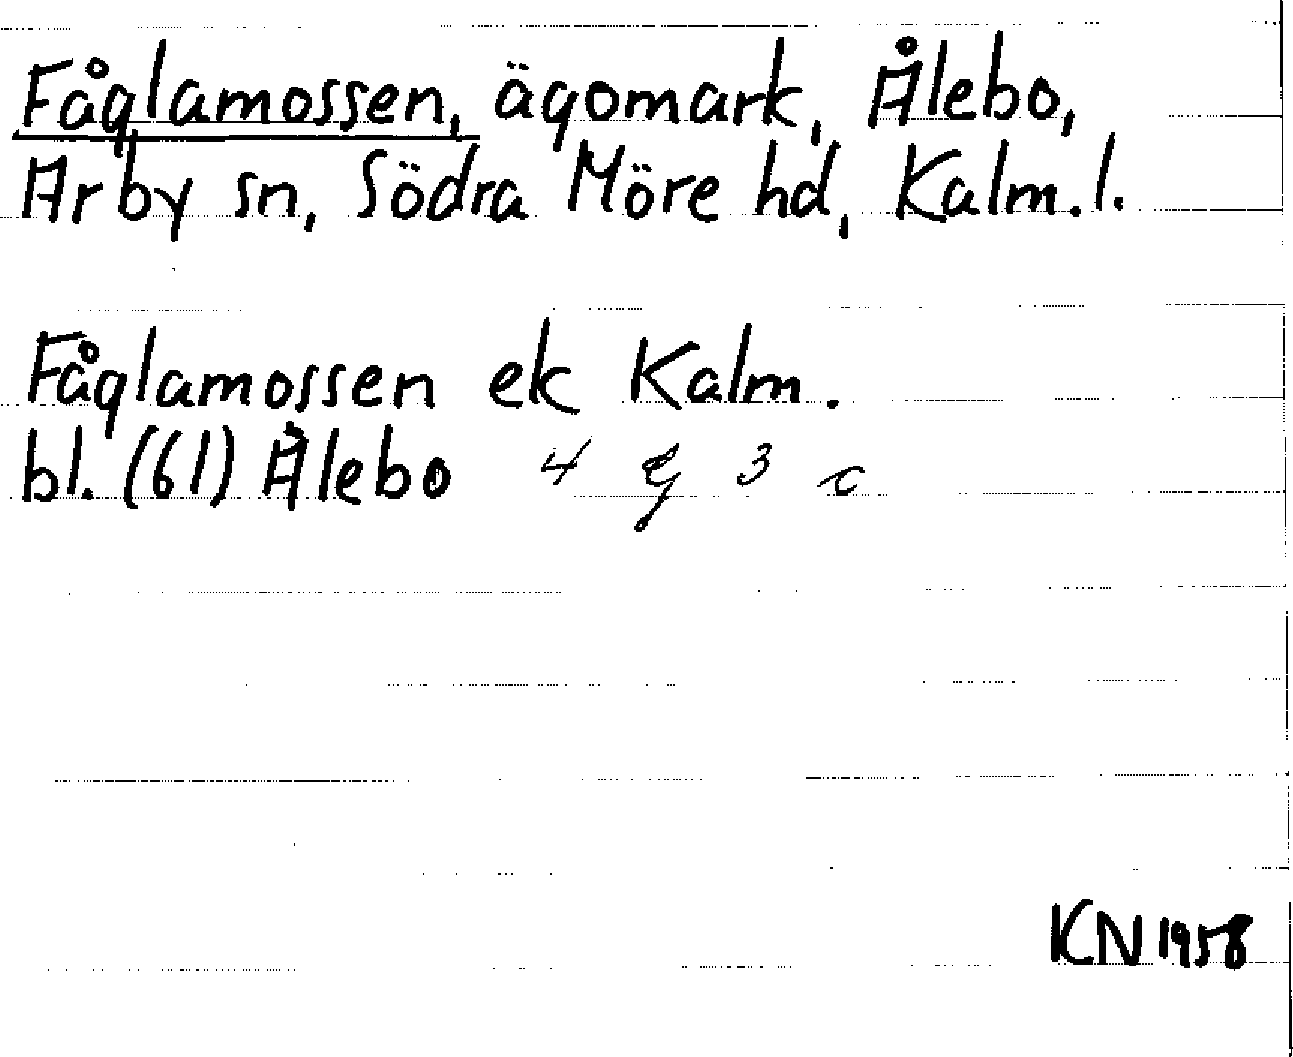 Fåglamossen, ägomark, Ålebo,
Arby sn, Södra Möre hd, Kalm.l.
Fåglamossen ek Kalm.
bl. (61) Ålebo 4 g 3 c
KN 1958